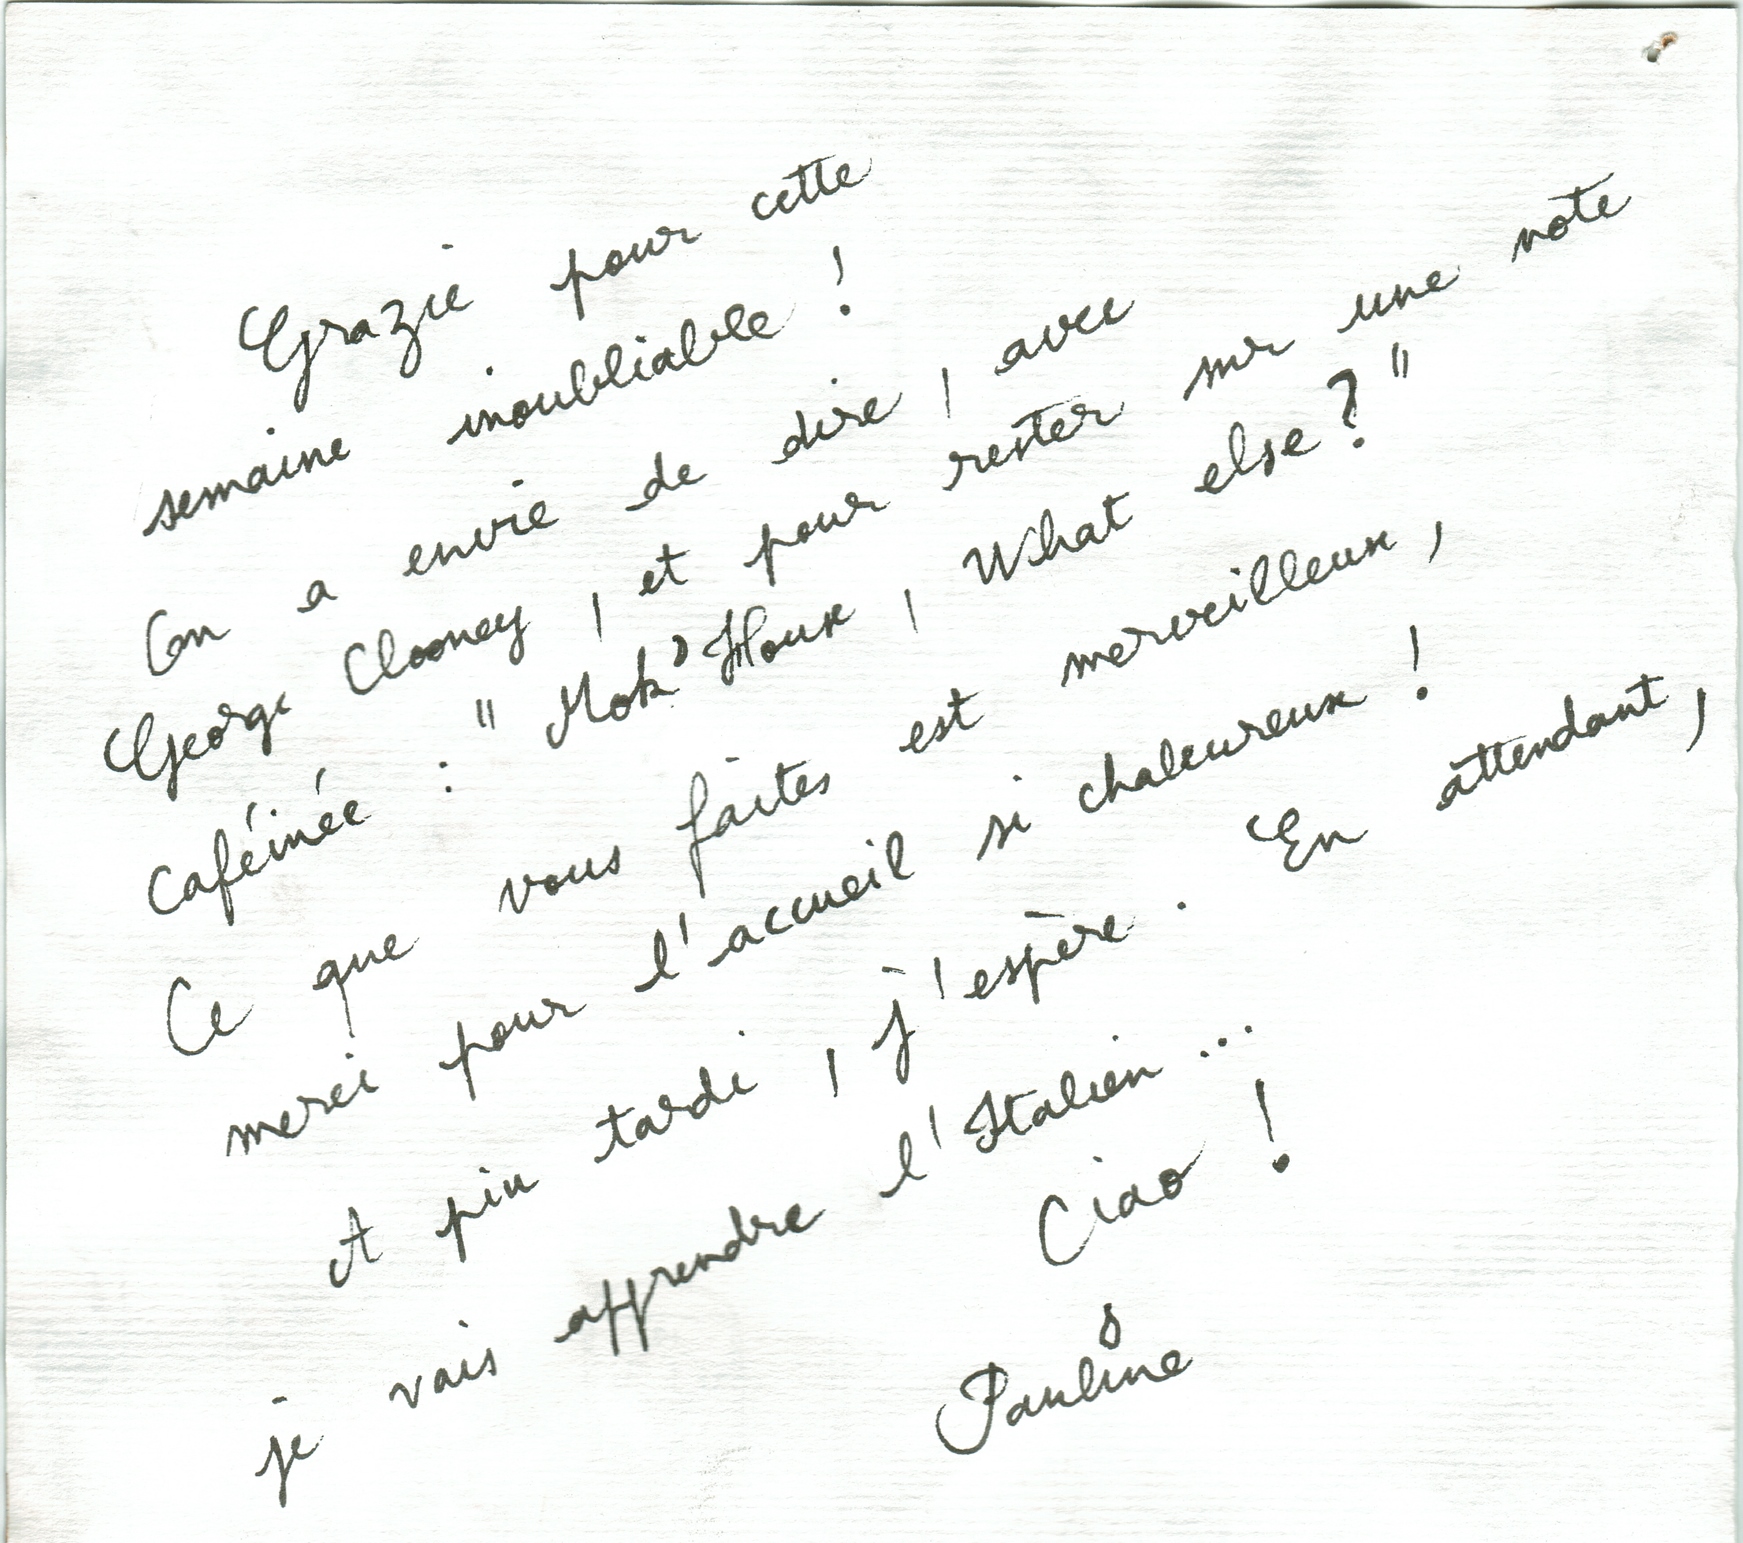 Grazie pour cette
semaine inoubliable !
On a envie de dire, avec
George Clooney, et pour rester sur une note
caféinée : " Mok'House, What else ? "
Ce que vous faites est merveilleux,
merci pour l'accueil si chaleureux !
A piu tardi, j'espère. En attendant,
je vais apprendre l'Italien...
Ciao !
Pauline